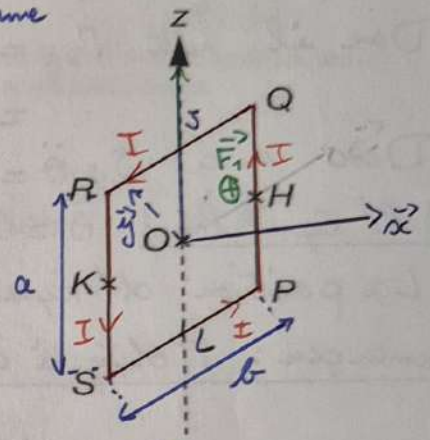 z
Q
I
F₁ I
⊕
R
H
y
O
x
a
K
P
I
L
I
S
b